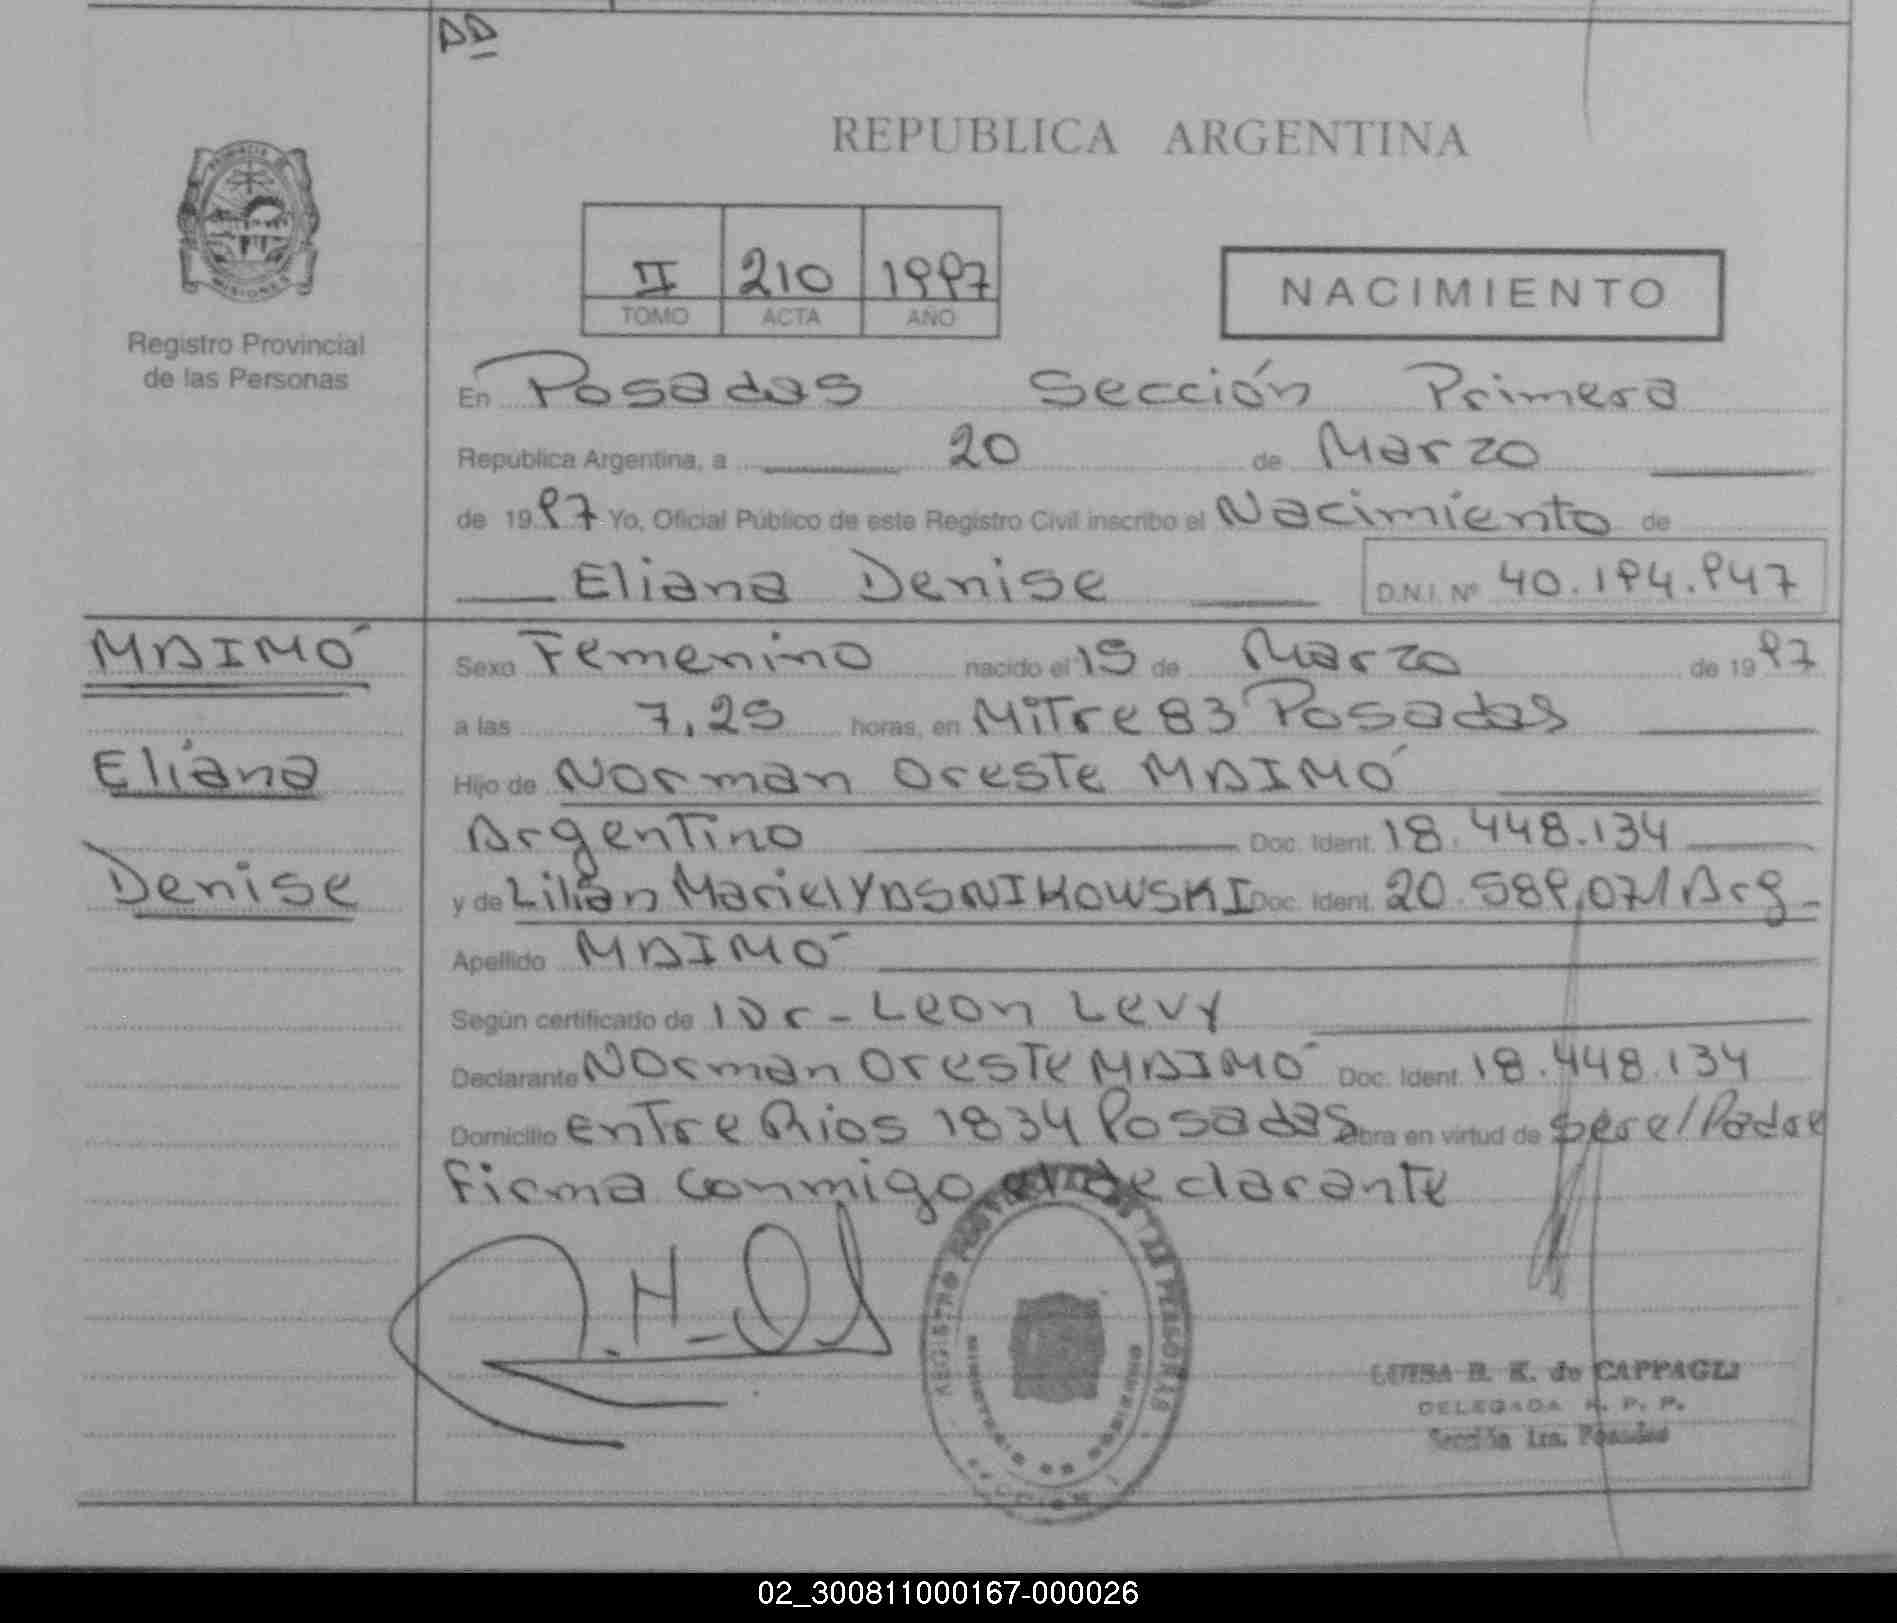 AA
REPUBLICA ARGENTINA
PROVINCIA DE
MISIONES
Registro Provincial
de las Personas
II 210 1997
TOMO ACTA AÑO
NACIMIENTO
En Posadas Sección Primera
República Argentina, a 20 de Marzo
de 1997 Yo, Oficial Público de este Registro Civil inscribo el Nacimiento de
Eliana Denise D.N.I. Nº 40.194.947
MAIMÓ
Eliana
Denise
Sexo Femenino nacido el 15 de Marzo de 1997
a las 7,25 horas, en Mitre 83 Posadas
Hijo de Norman Oreste MAIMÓ
Argentino Doc. Ident. 18.448.134
y de Lilian Mariel YASNIKOWSKI Doc. Ident. 20.589.071 Arg.
Apellido MAIMÓ
Según certificado de Dr. Leon Levy
Declarante Norman Oreste MAIMÓ Doc. Ident. 18.448.134
Domicilio Entre Rios 1834 Posadas Obra en virtud de Ser el Padre
Firma conmigo el declarante
REGISTRO PROVINCIAL DE LAS PERSONAS
MINISTERIO DE GOBIERNO
SECCION 1
LUISA B. K. de CAPPAGLI
DELEGADA R. P. P.
Sección 1ra. Posadas
02_300811000167-000026